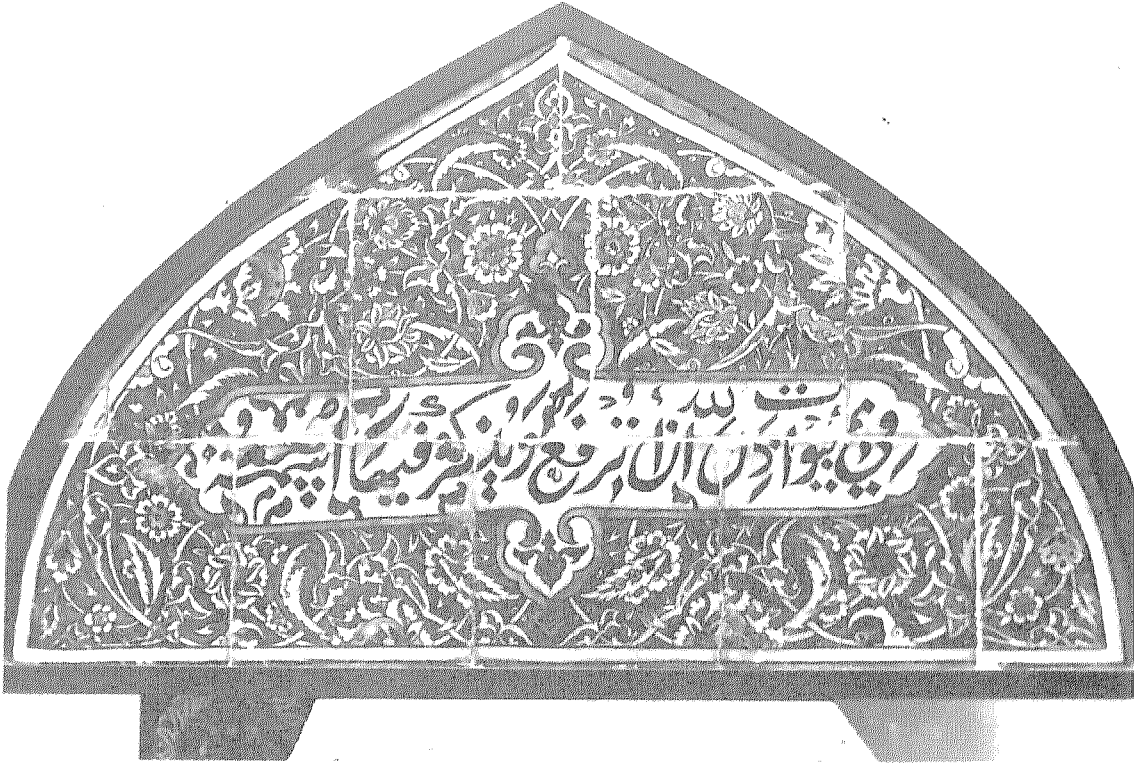 في بيوت اذن الله ان ترفع ويذكر فيها